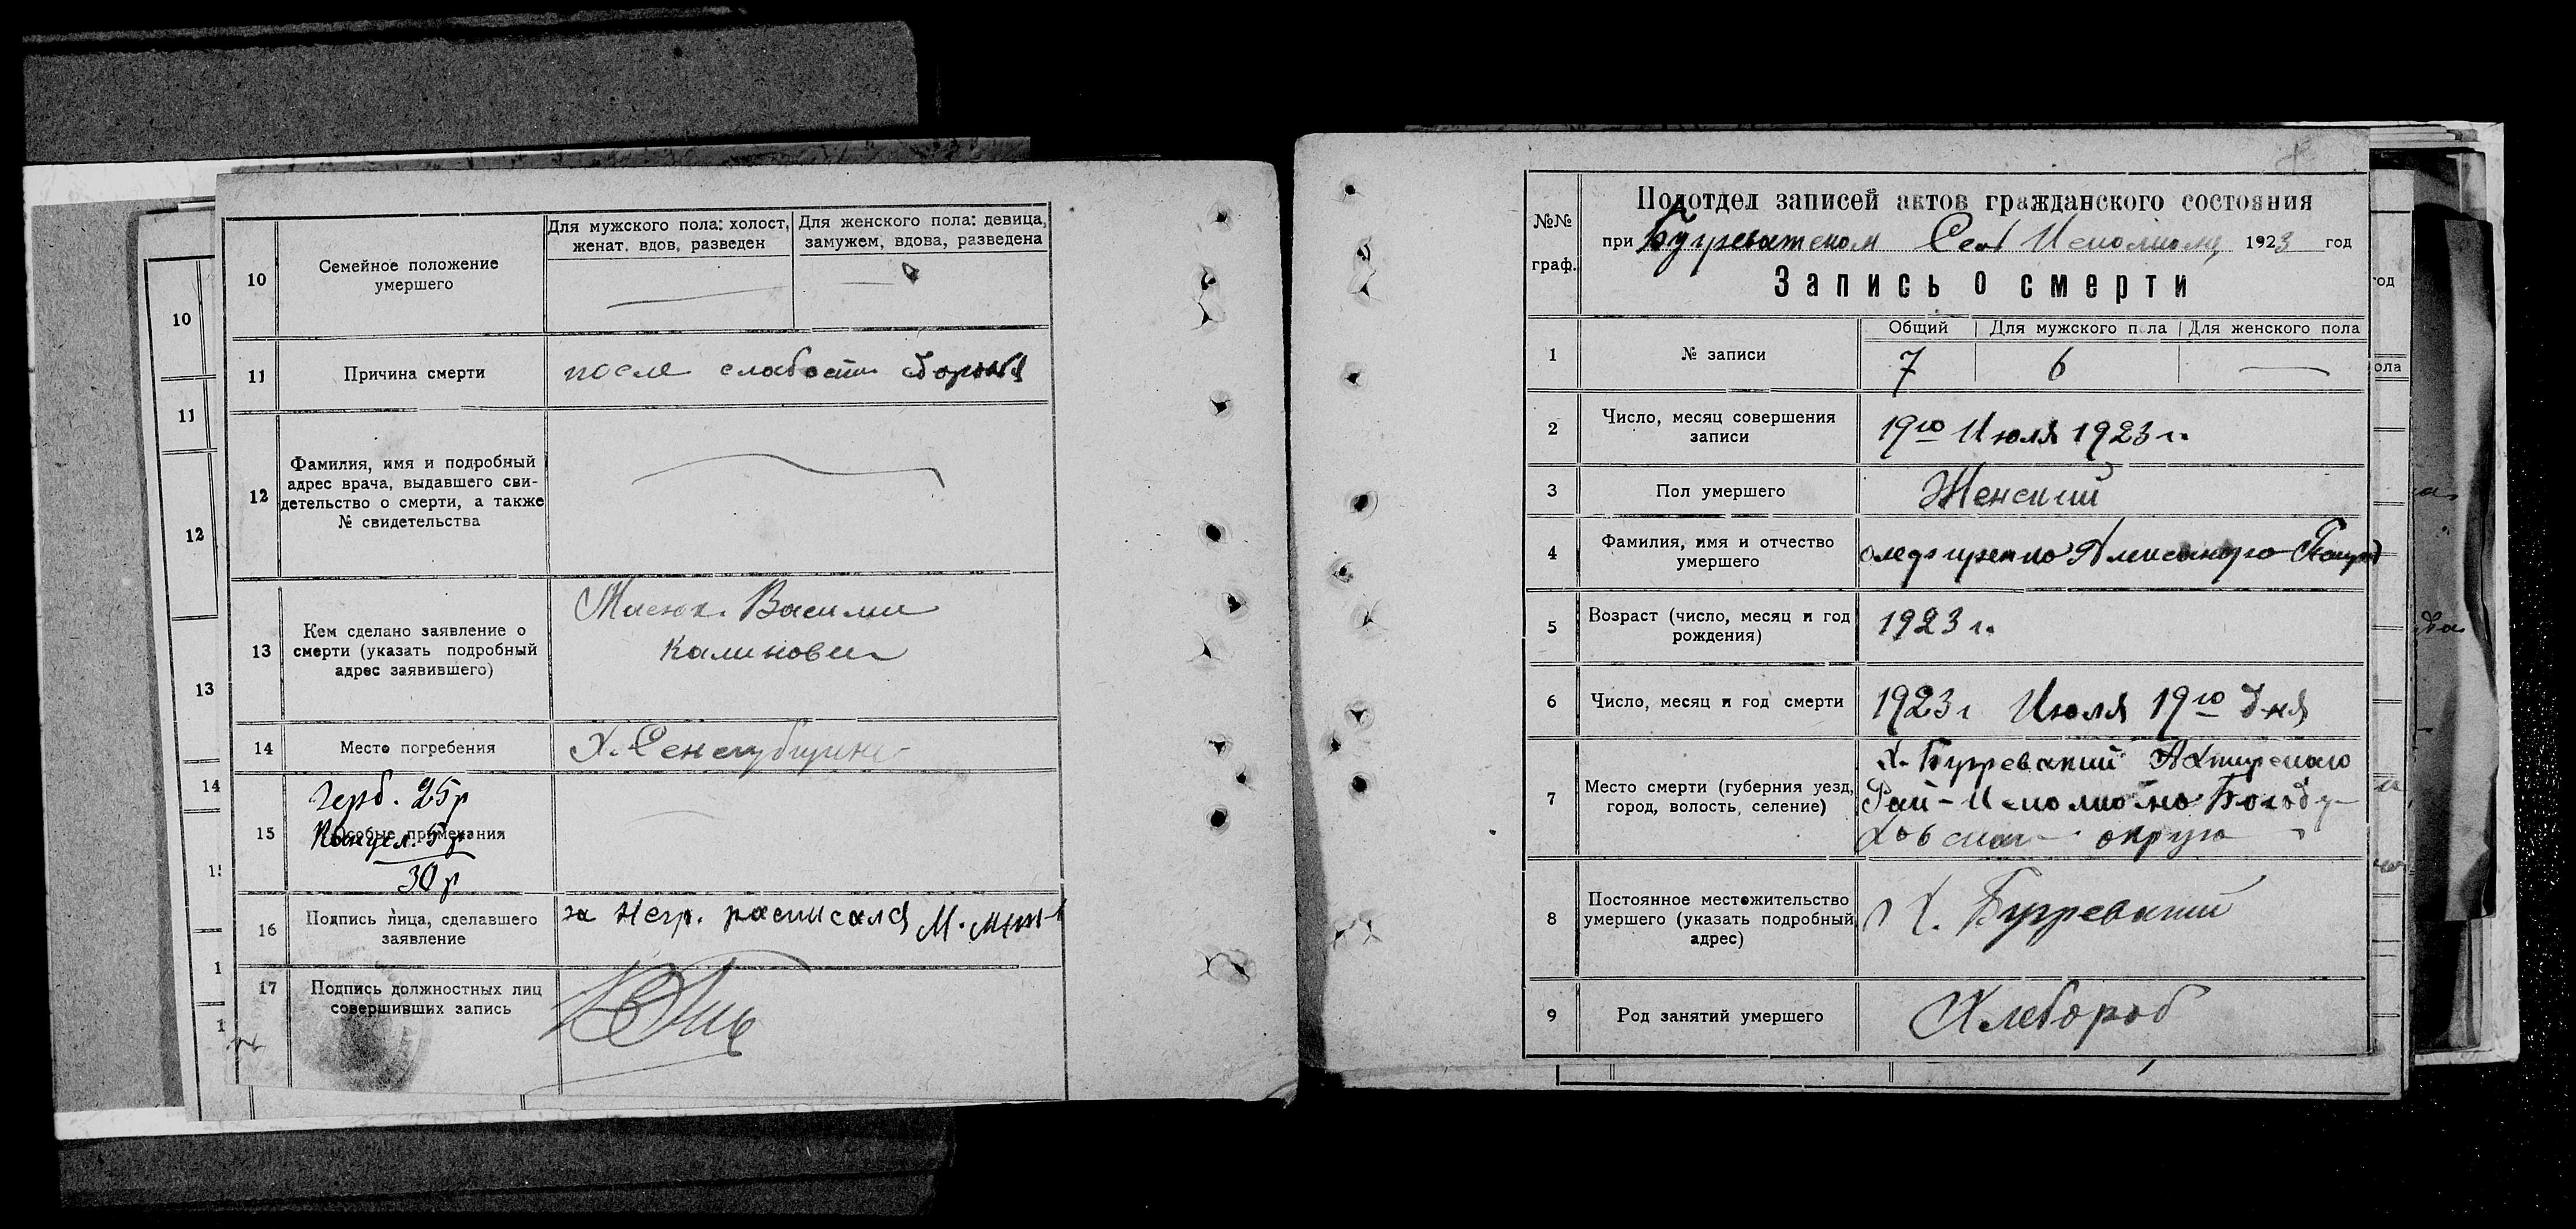 10
Семейное положение
умершего
Для мужского пола: холост,
женат. вдов, разведен
Для женского пола: девица,
замужем, вдова, разведена
11
Причина смерти
после слабости
12
Фамилия, имя и подробный
адрес врача, выдавшего сви-
детельство о смерти, а также
№ свидетельства
13
Кем сделано заявление о
смерти (указать подробный
адрес заявившего)
Василий
Калинович
14
Место погребения
Х.
15
Особые примечания
Герб. 25р
Канцел. 5р
30р
16
Подпись лица, сделавшего
заявление
за негр. расписался М.
17
Подпись должностных лиц
совершивших запись
10
11
12
13
14
№№
граф.
Подотдел записей актов гражданского состояния
при Бугреватском Сель Исполкому 1923 год
Запись о смерти
1
№ записи
Общий
Для мужского пола
Для женского пола
7
6
2
Число, месяц совершения
записи
19го Июля 1923 г.
3
Пол умершего
Женский
4
Фамилия, имя и отчество
умершего
5
Возраст (число, месяц и год
рождения)
1923 г.
6
Число, месяц и год смерти
1923 г Июля 19го дня
7
Место смерти (губерния уезд,
город, волость, селение)
Х. Бугреватий Ахтирскаго
Рай-Исполкома Богоду-
ховскаго округа
8
Постоянное местожительство
умершего (указать подробный
адрес)
Х. Бугреватий
9
Род занятий умершего
Хлебороб